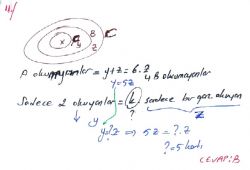 4/
x y B z
A okumayanlar = y+z = 6.z
y=5z
4 B okumayanlar
Sadece 2 okuyanlar = k. sadece bir gaz. okuyan
y z
?
y=?z ⇒ 5z = ?.z
?=5 katı
CEVAP:B